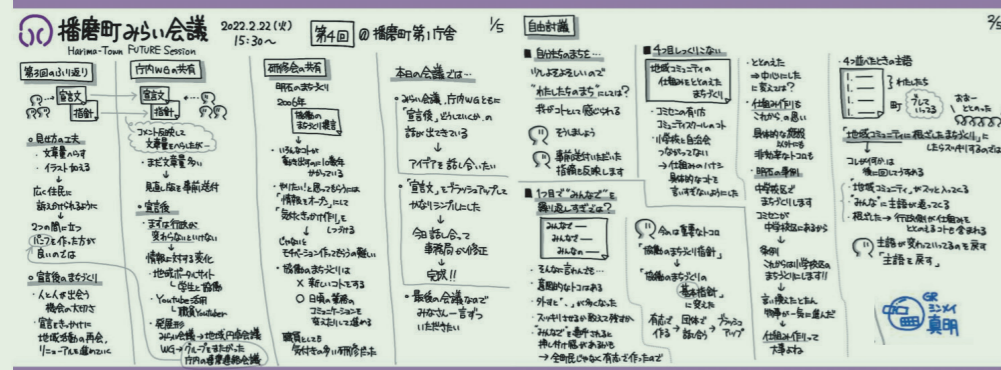 播磨町みらい会議
Harima-Town FUTURE Session
2022.2.22(火)
15:30〜
第4回 @播磨町第1庁舎
1/5
第3回のふり返り
宣言文
指針
見せ方の工夫
・文章量へらす
・イラスト加える
↓
広く住民に
訴えかけられるように
↓
2つの間に立つ
パーツを作った方が
良いのでは
宣言後のまちづくり
・人と人が出会う
機会の大切さ
・宣言をきっかけに
地域活動の再会,
リニューアルを進めていく
庁内WGの共有
宣言文
指針
コメント反映して
文章量へらしたが…
・まだ文章量多い
↓
見直し版を事前送付
宣言後
・まずは行政が
変わらないといけない
↓
情報に対する変化
・地域ポータルサイト
学生と協働
・Youtube活用
職員Youtuber
・発展形
みらい会議→地域円卓会議
WG→グループをまたがった
庁内の事業連絡会議
研修会の共有
明石のまちづくり
2006年
協働の
まちづくり提言
↓
・いろんなコトが
動き出すのに10数年
かかっている
・やりたい!と思ってもらうには
「情報をオープン」にして
「気付きのきっかけ作り」を
しつづける
じゃないと
モチベーション作ってもらうの難しい
・協働のまちづくりは
× 新しいコトをする
○ 日頃の業務の
コミュニケーションを
変えたりして進める
職員としても
気付きの多い研修だった
本日の会議では…
・みらい会議,庁内WGともに
「宣言後,どうしていくか」の
話が出てきている
↓
アイデアを話し合いたい
・「宣言文」をブラッシュアップして
かなりシンプルにした
↓
今日話し合って
事務局が修正
↓
完成!!
・最後の会議なので
みなさん一言ずつ
いただきたい
自由討議
2/5
■自分たちのまちを…
"わたしたちのまち"にしては?
我がコトとして感じられる
そうしましょう
事前送付いただいた
指摘も反映します
■1つ目で"みんなで"を
繰り返しすぎでは?
みんなで―
みんなで―
みんなで―
・そんなに言わんでも…
・意図的なトコはある
・外すと"、"が多くなった
・スッキリさせるか敢えて残すか
・"みんなで"を連呼されると
押し付け感があるかも
→全町民じゃなく有志で作ったので
■4つ目しっくりこない
地域コミュニティの
仕組みをととのえた
まちづくり
・コミセンの有り方
コミュニティスクールのコト
・小学校と自治会
つながってない
→仕組みのハナシ
具体的なコトを
言いすぎないようにした
今日は重要なトコ
「協働のまちづくり指針」
↓
「協働のまちづくりの
基本指針」
に変えた
有志で
作る
→
団体で
話し合う
→
ブラッシュ
アップ
・ととのえた
→中心にした
に変えては?
・仕組み作りも
これから,の思い
具体的な施設
以外にも
・明石の事例
中学校区で
まちづくりします
コミセンが
中学校区にあるから
↓
条例
これからは小学校区の
まちづくりにします!!
↓
言い換えたとたん
物事が一気に進んだ
↓
仕組み作りって
大事よね
・4つ並べたときの主語
1. ―
2. ―
3. ―
4. ―
わたしたち
町
「地域コミュニティに根ざしたまちづくり」に
したらスッキリするのでは
↓
コレが何かは
後に回してもうする
・「地域コミュニティ」がスッと入ってくる
・"みんな"に主語が返ってくる
・根ざした→行政側が仕組みを
ととのえるコトも含む
主語が変わっていってるのを戻す
「主語を戻す」
GR
シンメイ
真明